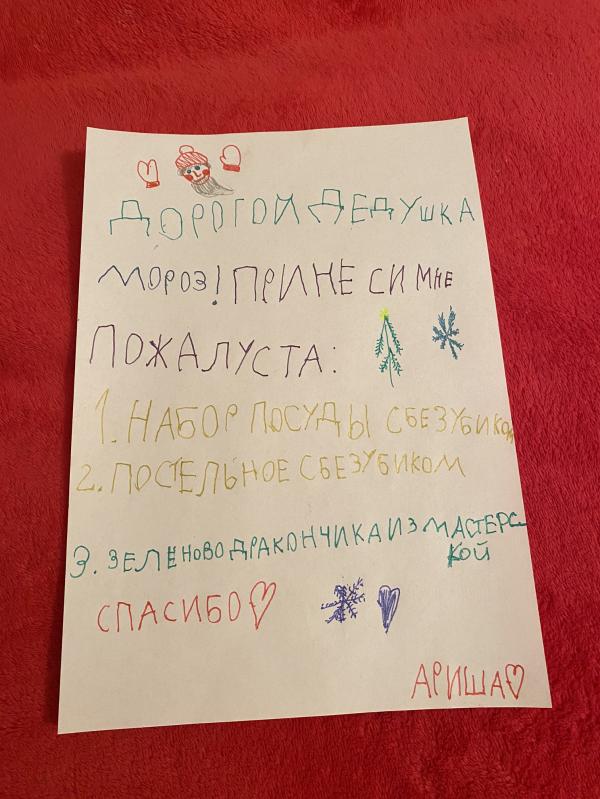 ДОРОГОЙ ДЕДУШКА
МОРОЗ! ПРИНЕСИ МНЕ
ПОЖАЛУСТА:
1. НАБОР ПОСУДЫ С БЕЗУБИКОМ
2. ПОСТЕЛЬНОЕ С БЕЗУБИКОМ
3. ЗЕЛЕНОВО ДРАКОНЧИКА ИЗ МАСТЕРС-
КОЙ
СПАСИБО
АРИША